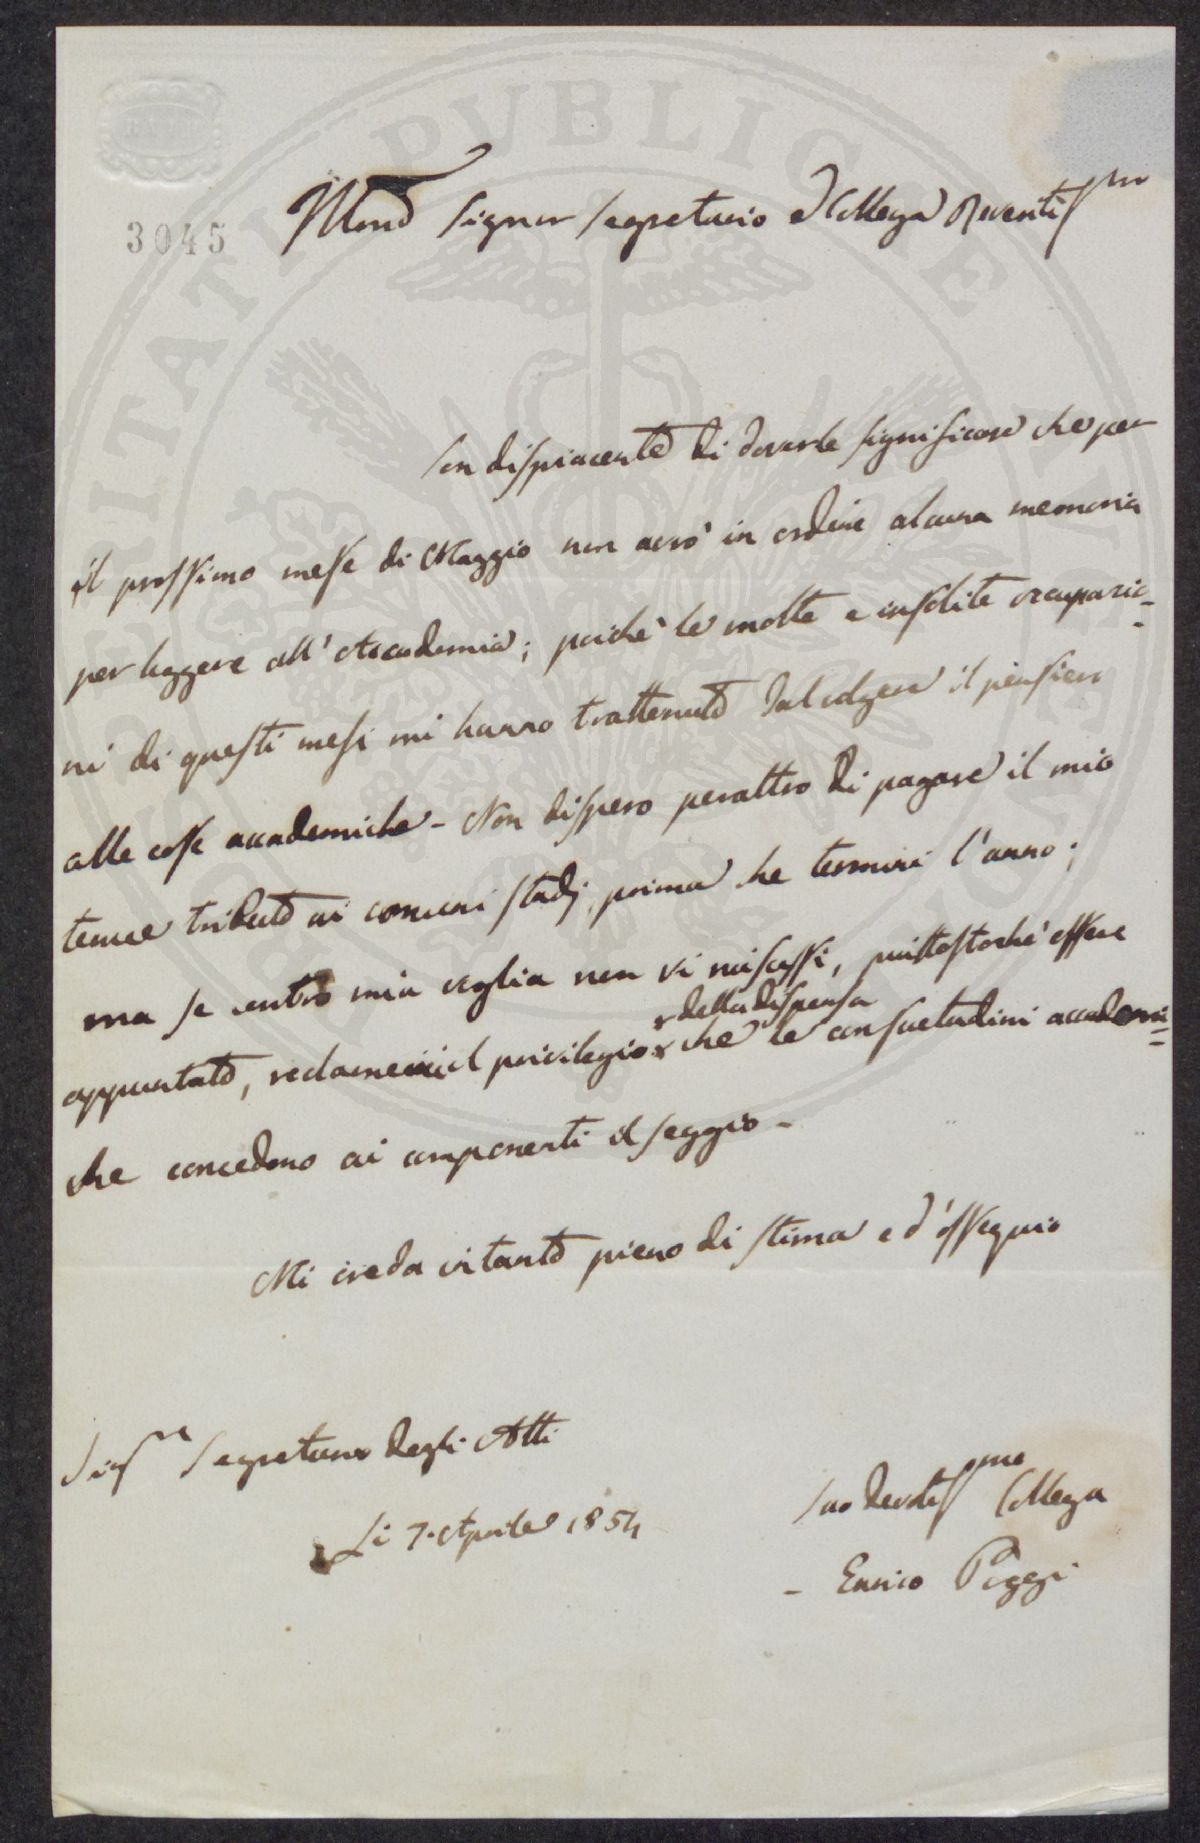 BATH
3045
Illmo Signor Segretario e Collega Reveritissmo
Son dispiacente di doverle significare che per
il prossimo mese di Maggio non avrò in ordine alcuna memoria
per leggere all' Accademia; poichè le molte e insolite occupazio-
ni di questi mesi mi hanno trattenuto dal volgere il pensiero
alle cose accademiche - Non dispero peraltro di pagare il mio
tenue tributo ai comuni studj, prima che termini l'anno;
ma se contro mia voglia non vi riuscissi, piuttostochè essere
della dispensa
appuntato, reclamerei il privilegio che le consuetudini accademi=
che concedono ai componenti il seggio -
Mi creda intanto pieno di stima e d'ossequio
Sigr Segretario degli Atti
Li 7. Aprile 1854
Suo Devotissmo Collega
- Enrico Poggi